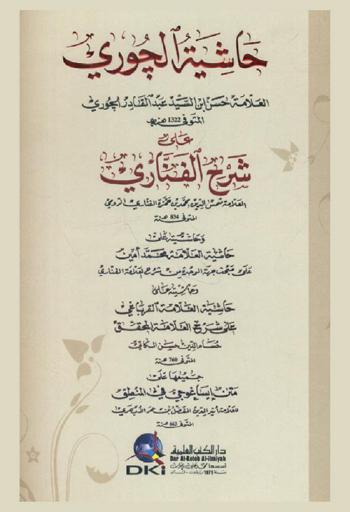 حاشية الچوري
العلامة حسن ابن السيد عبد القادر الچوري
المتوفى 1322 هـ
على
شرح الفناري
العلامة شمس الدين محمد بن حمزة الفناري الرومي
المتوفى 834 هـ
وحاشيته على
حاشية العلامة محمد أمين
على مبحث جهة الوحدة من شرح العلامة الفناري
وحاشيته على
حاشية العلامة القرباغي
على شرح العلامة المحقق
حسام الدين حسن الكاتي
المتوفى 760 هـ
جميعها على
متن إيساغوجي في المنطق
للعلامة أثير الدين المفضل بن عمر الأبهري
المتوفى 663 هـ
دار الكتب العلمية
Dar Al-Kotob Al-ilmiyah
1971
DKi